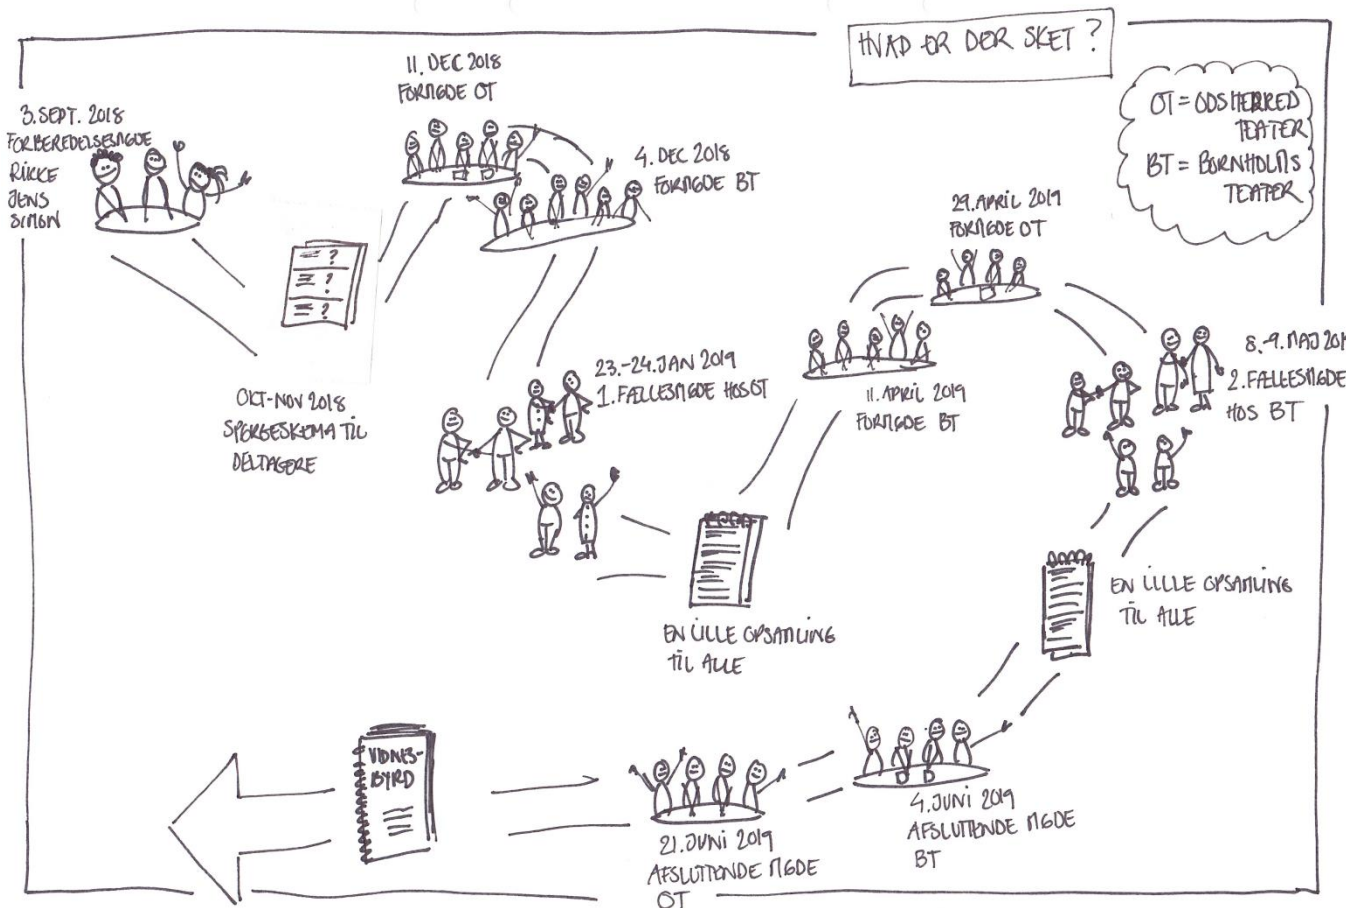 HVAD ER DER SKET?
OT = ODSHERRED
TEATER
BT = BORNHOLMS
TEATER
3. SEPT. 2018
FORBEREDELSESMØDE
RIKKE
JENS
SIMON
OKT-NOV 2018
SPØRGESKEMA TIL
DELTAGERE
? 
?
?
11. DEC 2018
FORMØDE OT
4. DEC 2018
FORMØDE BT
23.-24. JAN 2019
1. FÆLLESMØDE HOS OT
EN LILLE OPSAMLING
TIL ALLE
11. APRIL 2019
FORMØDE BT
29. APRIL 2019
FORMØDE OT
8.-9. MAJ 201
2. FÆLLESMØDE
HOS BT
EN LILLE OPSAMLING
TIL ALLE
4. JUNI 2019
AFSLUTTENDE MØDE
BT
21. JUNI 2019
AFSLUTTENDE MØDE
OT
VIDNES-
BYRD